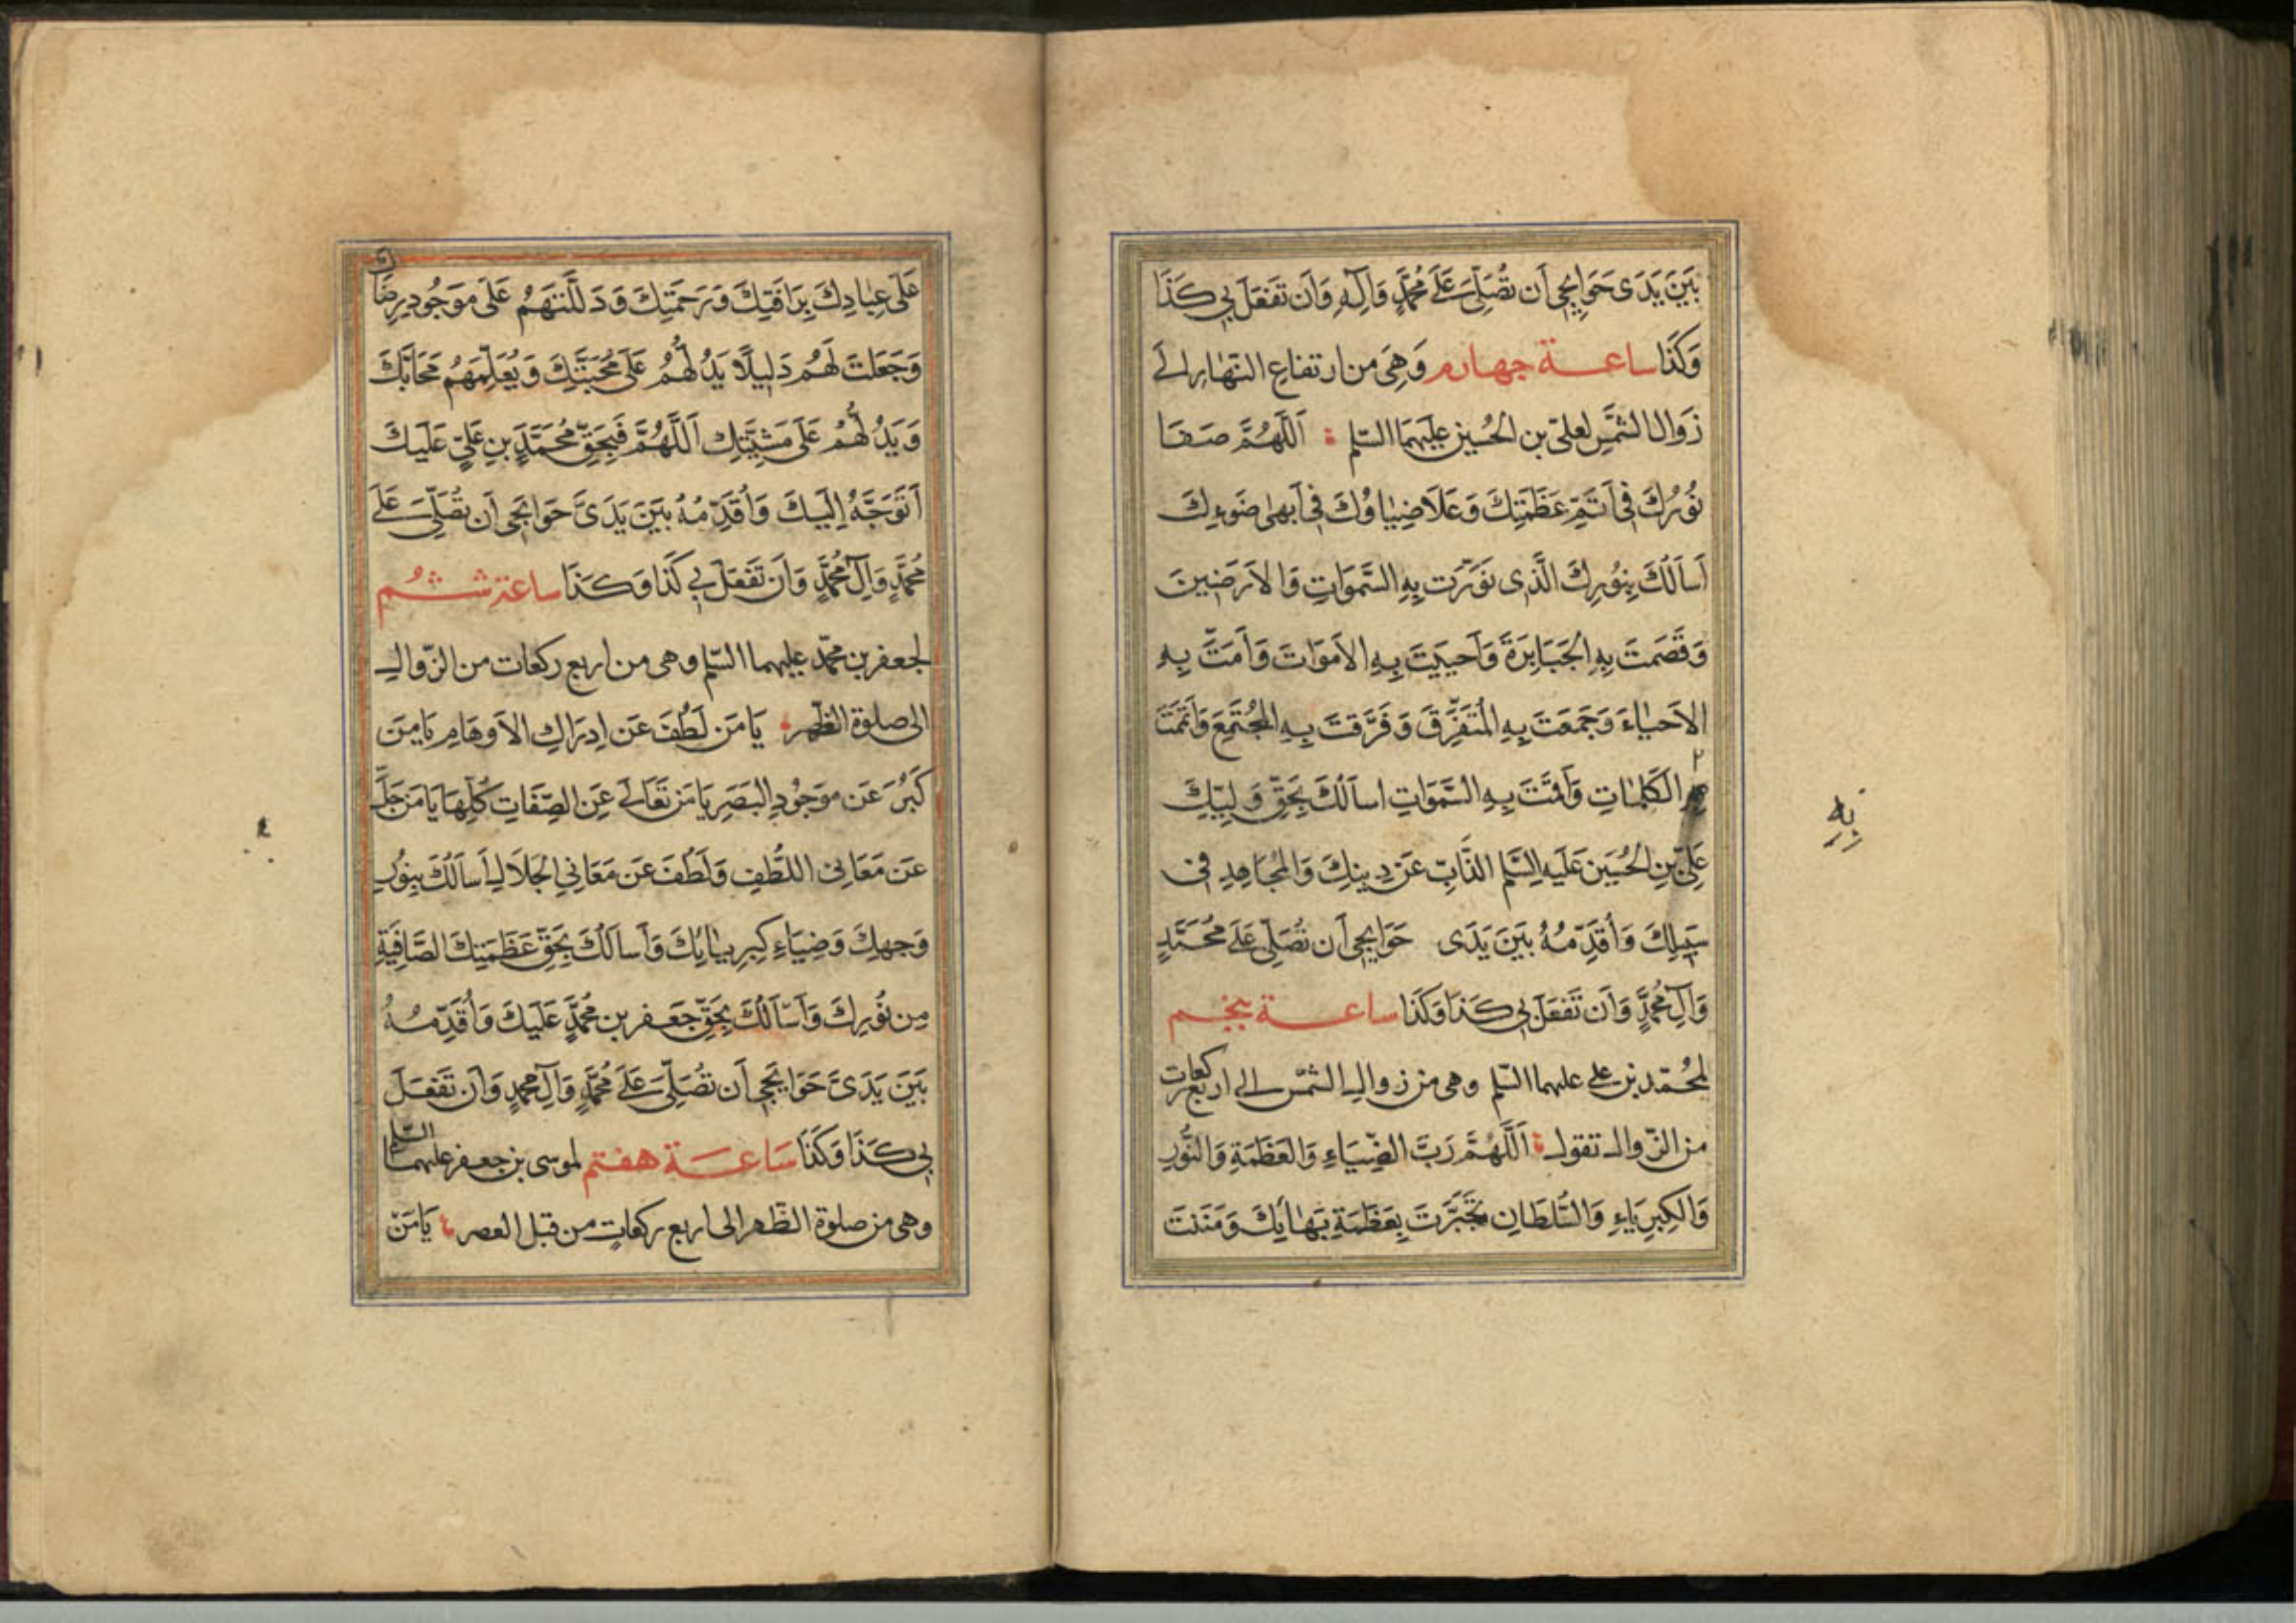 بَيْنَ يَدَى حَوَايِجِى أَن تُصَلِّىَ عَلَى مُحَمَّدٍ وَآلِهِ وَأَن تَفْعَلَ بِي كَذَا
وَكَذَا ساعة جهارم وَهِىَ من ارتفاعِ النّهارِ الى
زَوَالِ الشَّمْسِ لعلىّ بن الحُسينِ عليهِمَا السّلم اَللّهُمَّ صَفَا
نُورُكَ فِى أَتَمِّ عَظَمَتِكَ وَعَلَا ضِيَاؤُكَ فِى أَبهى ضَوءِكَ
أَسأَلُكَ بِنُورِكَ الَّذِى نَوَّرْتَ بِهِ السَّمَوَاتِ وَالاَرَضِينَ
وَقَصَمْتَ بِهِ الجَبَابِرَةَ وَأَحيَيْتَ بِهِ الأَموَاتَ وَأَمَتَّ بِهِ
الاَحيَاءَ وَجَمَعتَ بِهِ المُتَفَرِّقَ وَفَرَّقتَ بِهِ المُجتَمِعَ وَأَتمَمْتَ
بِهِ
الكَلِمَاتِ وَأَقَمْتَ بِهِ السَّمَوَاتِ اسأَلُكَ بِحَقِّ وَلِيِّكَ
عَلِىِّ بنِ الحُسَينِ عَلَيهِ السَّلم الذَّابِّ عَن دِينِكَ وَالمُجَاهِدِ فى
سَبِيلِكَ وَأُقَدِّمُهُ بَيْنَ يَدَى حَوَايِجِى أَن تُصَلِّىَ عَلَى مُحَمَّدٍ
وَآلِ مُحَمَّدٍ وَأَن تَفعَلَ بِي كَذَا وَكَذَا ساعة پنجم
لمُحمّد بن على عليهما السّلم وهى من زوال الشّمس الى اربع ركعات
من الزّوال تقول اَللّهُمَّ رَبَّ الضِّيَاءِ وَالعَظَمَةِ وَالنُّورِ
وَالكِبرِيَاءِ وَالسُّلطَانِ تَجَبَّرتَ بِعَظَمَةِ بَهَائِكَ وَمَنَنتَ
عَلَى عِبَادِكَ بِرَافَتِكَ وَرَحمَتِكَ وَدَلَلتَهُم عَلَى مَوجُودِ رِضَاكَ
وَجَعَلتَ لَهُم دَلِيلًا يَدُلُّهُم عَلَى مَحَبَّتِكَ وَيُعَلِّمُهُم مَحَابَّكَ
وَيَدُلُّهُم عَلَى مَشِيَّتِكَ اَللَّهُمَّ فَبِحَقِّ مُحَمَّدِ بنِ عَلِىٍّ عَلَيكَ
أَتَوَجَّهُ إِلَيكَ وَأُقَدِّمُهُ بَيْنَ يَدَىَّ حَوَايِجِى أَن تُصَلِّىَ عَلَى
مُحَمَّدٍ وَآلِ مُحَمَّدٍ وَأَن تَفْعَلَ بِي كَذَا وَكَذَا ساعة ششم
لجعفر بن محمّد عليهما السّلم وهى من اربع ركعات من الزّوال
الى صلوة الظّهر يَا مَن لَطُفَ عَن اِدرَاكِ الاَوهَامِ يَا مَن
كَبُرَ عَن مَوجُودِ البَصَرِ يَا مَن تَعَالى عَنِ الصِّفَاتِ كُلِّهَا يَا مَن جَلَّ
عَن مَعَانِى اللُّطفِ وَلَطُفَ عَن مَعَانِي الجَلَالِ أَسأَلُكَ بِنُورِ
وَجهِكَ وَضِيَاءِ كِبرِيَائِكَ وَأَسأَلُكَ بِحَقِّ عَظَمَتِكَ الصَّافِيَةِ
مِن نُورِكَ وَأَسأَلُكَ بِحَقِّ جَعفر بن مُحَمَّدٍ عَلَيكَ وَأُقَدِّمُهُ
بَيْنَ يَدَىَّ حَوَايِجِى أَن تُصَلِّىَ عَلَى مُحَمَّدٍ وَآلِ مُحَمَّدٍ وَأَن تَفعَلَ
بِي كَذَا وَكَذَا سَاعَة هفتم لموسى بن جعفر عليهما السّلم
وهى من صلوة الظّهر الى اربع ركعاتٍ من قبل العصر يَا مَنْ